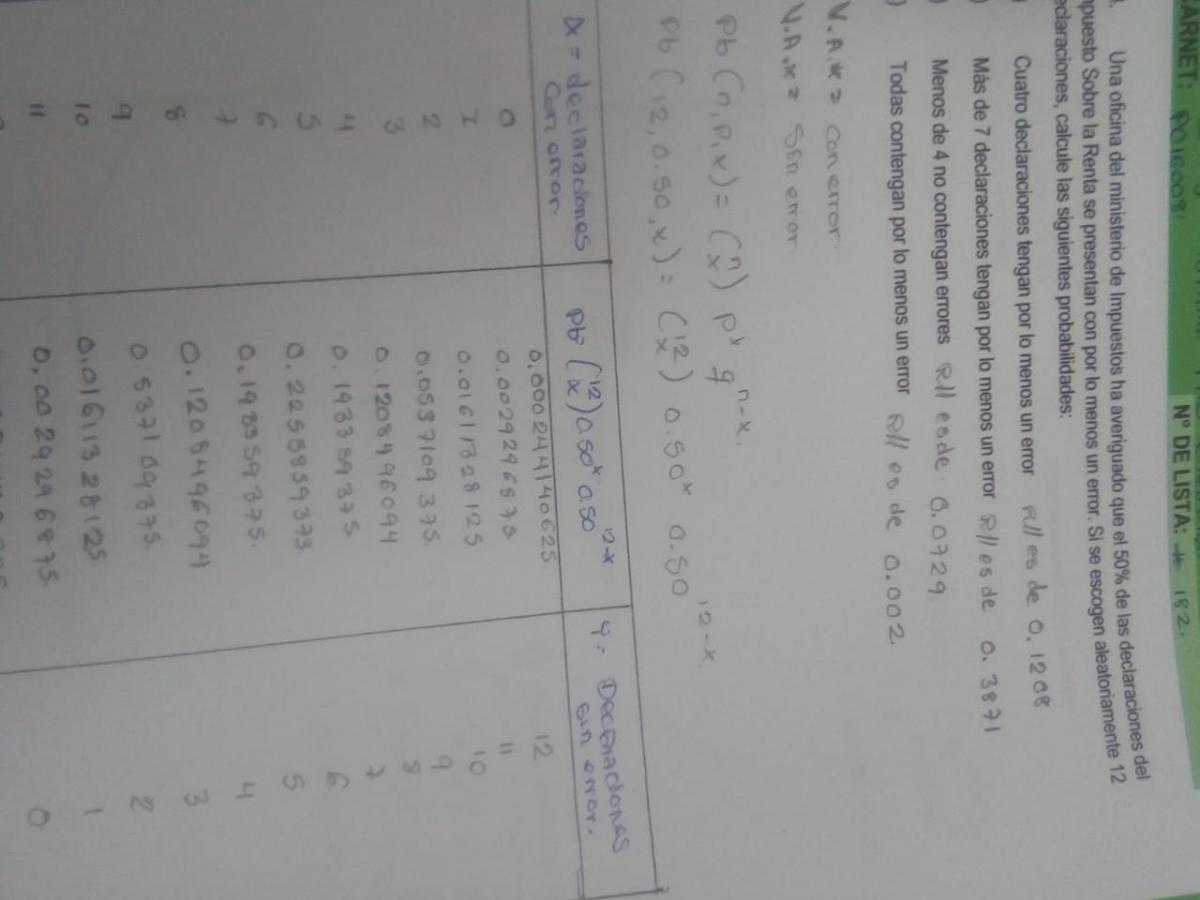 CARNET: PO16008 N° DE LISTA: 182.
Una oficina del ministerio de Impuestos ha averiguado que el 50% de las declaraciones del
puesto Sobre la Renta se presentan con por lo menos un error. Si se escogen aleatoriamente 12
eclaraciones, calcule las siguientes probabilidades:
Cuatro declaraciones tengan por lo menos un error R// es de 0.1208
) Más de 7 declaraciones tengan por lo menos un error R// es de 0.3871
) Menos de 4 no contengan errores R// es de 0.0729
) Todas contengan por lo menos un error R// es de 0.002
V.A.x = con error
V.A.x = sen error
Pb (n,p,x) = (n x) p^x q^n-x.
Pb (12,0.50,x) = (12 x) 0.50^x 0.50^12-x
x = declaraciones con error. Pb= (12 x) 0.50^x 0.50^12-x Y =
sin error.
0 0.000244140625 12
1 0.0029296875 11
2 0.01611328125 10
3 0.0537109375 9
4 0.1208496094 8
5 0.193359375 7
6 0.2255859375 6
7 0.193359375. 5
8 0.1208496094 4
9 0.537109375. 3
10 0.01611328125 2
11 0.0029296875 1
0